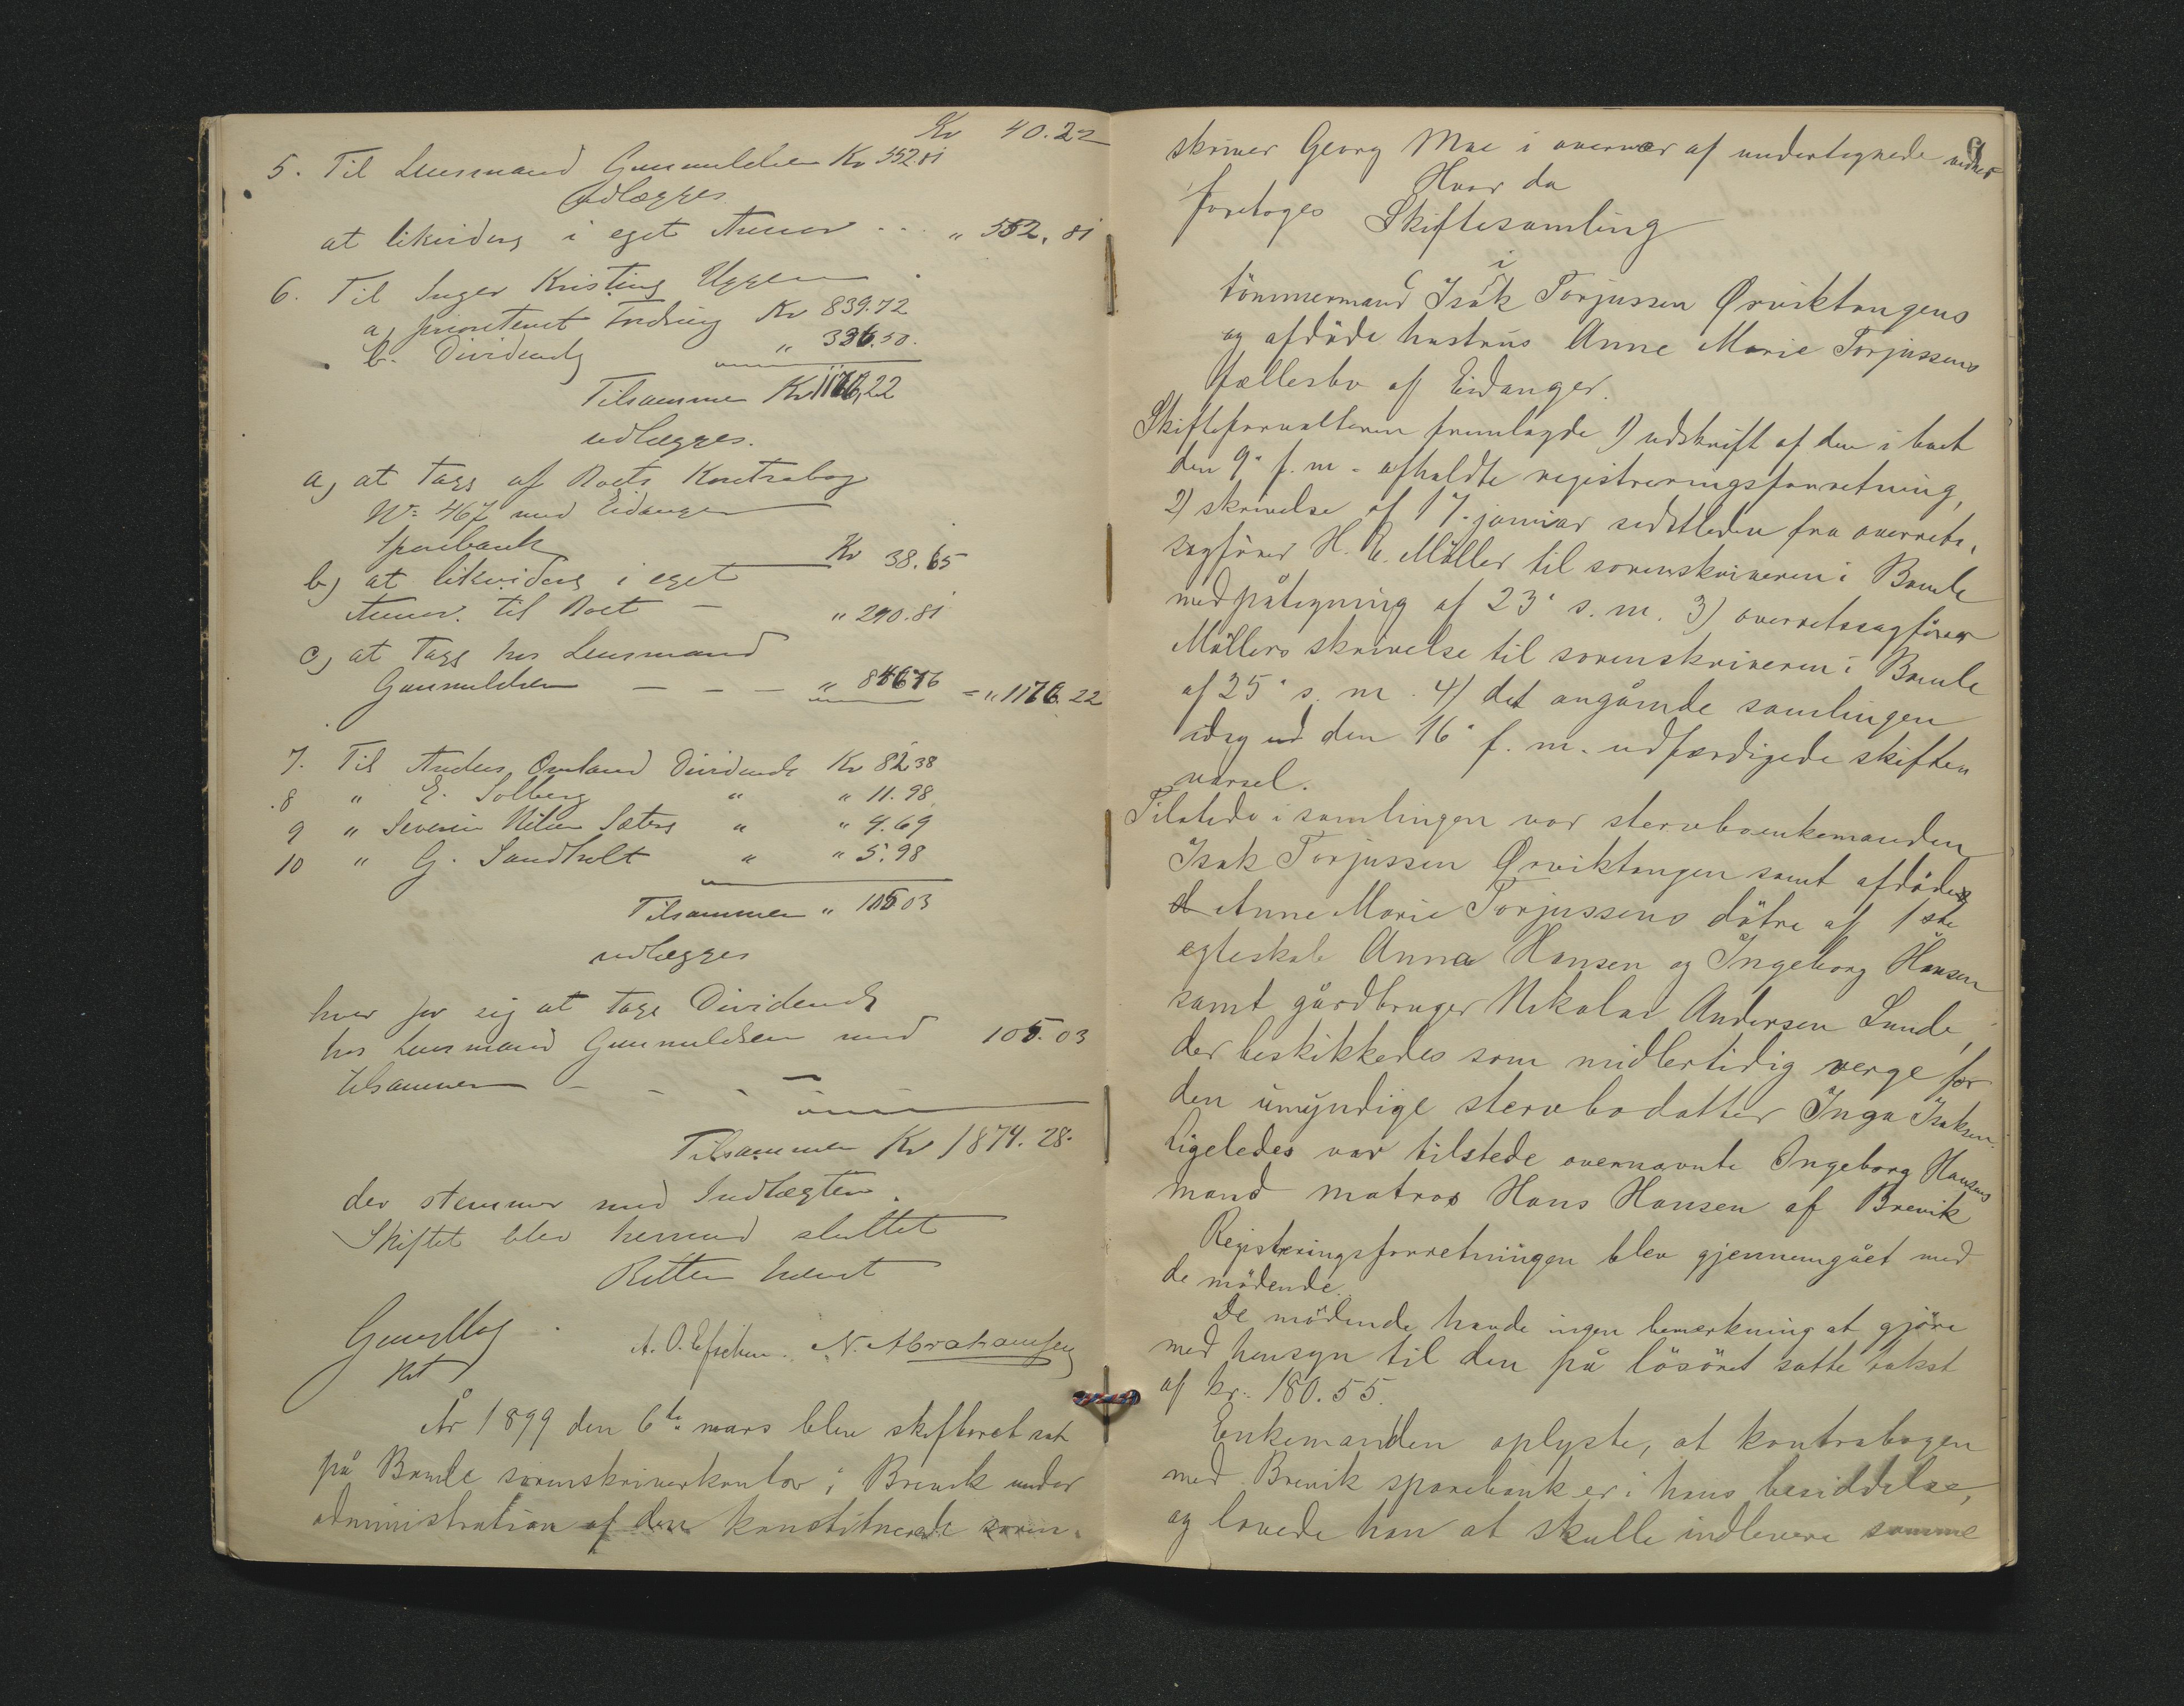 Kr 40.22
5. Til Lensmand Gunnuldsen Kr 552.81
udlægges
at likvidere i eget Ansvar . . . " 552.81
6. Til Inger Kristine
a, prioriteret Fordring Kr 839.72
b. Dividende " 336.50.
Tilsammen Kr 1176,22
udlægges.
a, at tage af Boets Kontrabog
No 467 med Eidanger
Sparebank Kr 38.65
b, at likvidere i eget
Ansv. til Boet – " 290.81
c, at tage hos Lensmand
Gunnuldsen – – – " 846.76 = " 1176.22
7. Til Anders Omland Dividende Kr 82.38
8 " E. Solberg " " 11.98
9 " Severin Nilsen " " 4.69
10 " G. Sandholt " " 5.98
Tilsammen " 105 03
udlægges
hver for sig at tage Dividende
hos Lensmand Gunnuldsen med 105.03
tilsammen – – – –
Tilsammen Kr 1874.28.
der stemmer med Indtægten.
Skiftet blev hermed sluttet
Retten hævet
Georg Mae
kst
N. Abrahamsen
År 1899 den 6te mars blev skifteret sat
på Bamle sorenskriverkontor i Brevik under
administration af den konstituerede soren-
9
skriver Georg Mae i overvær af undertegnede vidner
Hvor da
foretoges Skiftesamling
i
tömmermand Isak Torjussen Ørviktangens
og afdöde hustrus Anne Marie Torjussens
fællesbo af Eidanger.
Skifteforvalteren fremlagde 1) udskrift af den i boet
den 9de f. m. afholdte registreringsforretning,
2) skrivelse af 17. januar sidstleden fra overrets-
sagförer H. E. Möller til sorenskriveren i Bamle
med påtegning af 23de s. m. 3) overretssagförer
Möllers skrivelse til sorenskriveren i Bamle
af 25de s. m. 4) det angående samlingen
idag ud den 16de f. m. udfærdigede skifte-
varsel.
Tilstede i samlingen var stervboenkemanden
Isak Torjussen Ørviktangen samt afdödes
d Anne Marie Torjussens dötre af 1ste
egteskab Anna Hansen og Ingeborg Hansen
samt gårdbruger Nikolai Andersen Lunde,
der beskikkedes som midlertidig verge for
den umyndige stervbodatter Inga Isaksen.
Ligeledes var tilstede overnævnte Ingeborg Hansens
mand matros Hans Hansen af Brevik
Registreringsforretningen blev gjennemgået med
de mödende.
De mödende havde ingen bemerkning at gjöre
med hensyn til den på lösöret satte takst
af kr. 180.55.
Enkemanden oplyste, at kontrabogen
med Brevik sparebank er i hans besiddelse,
og lovede han at skulle indlevere samme